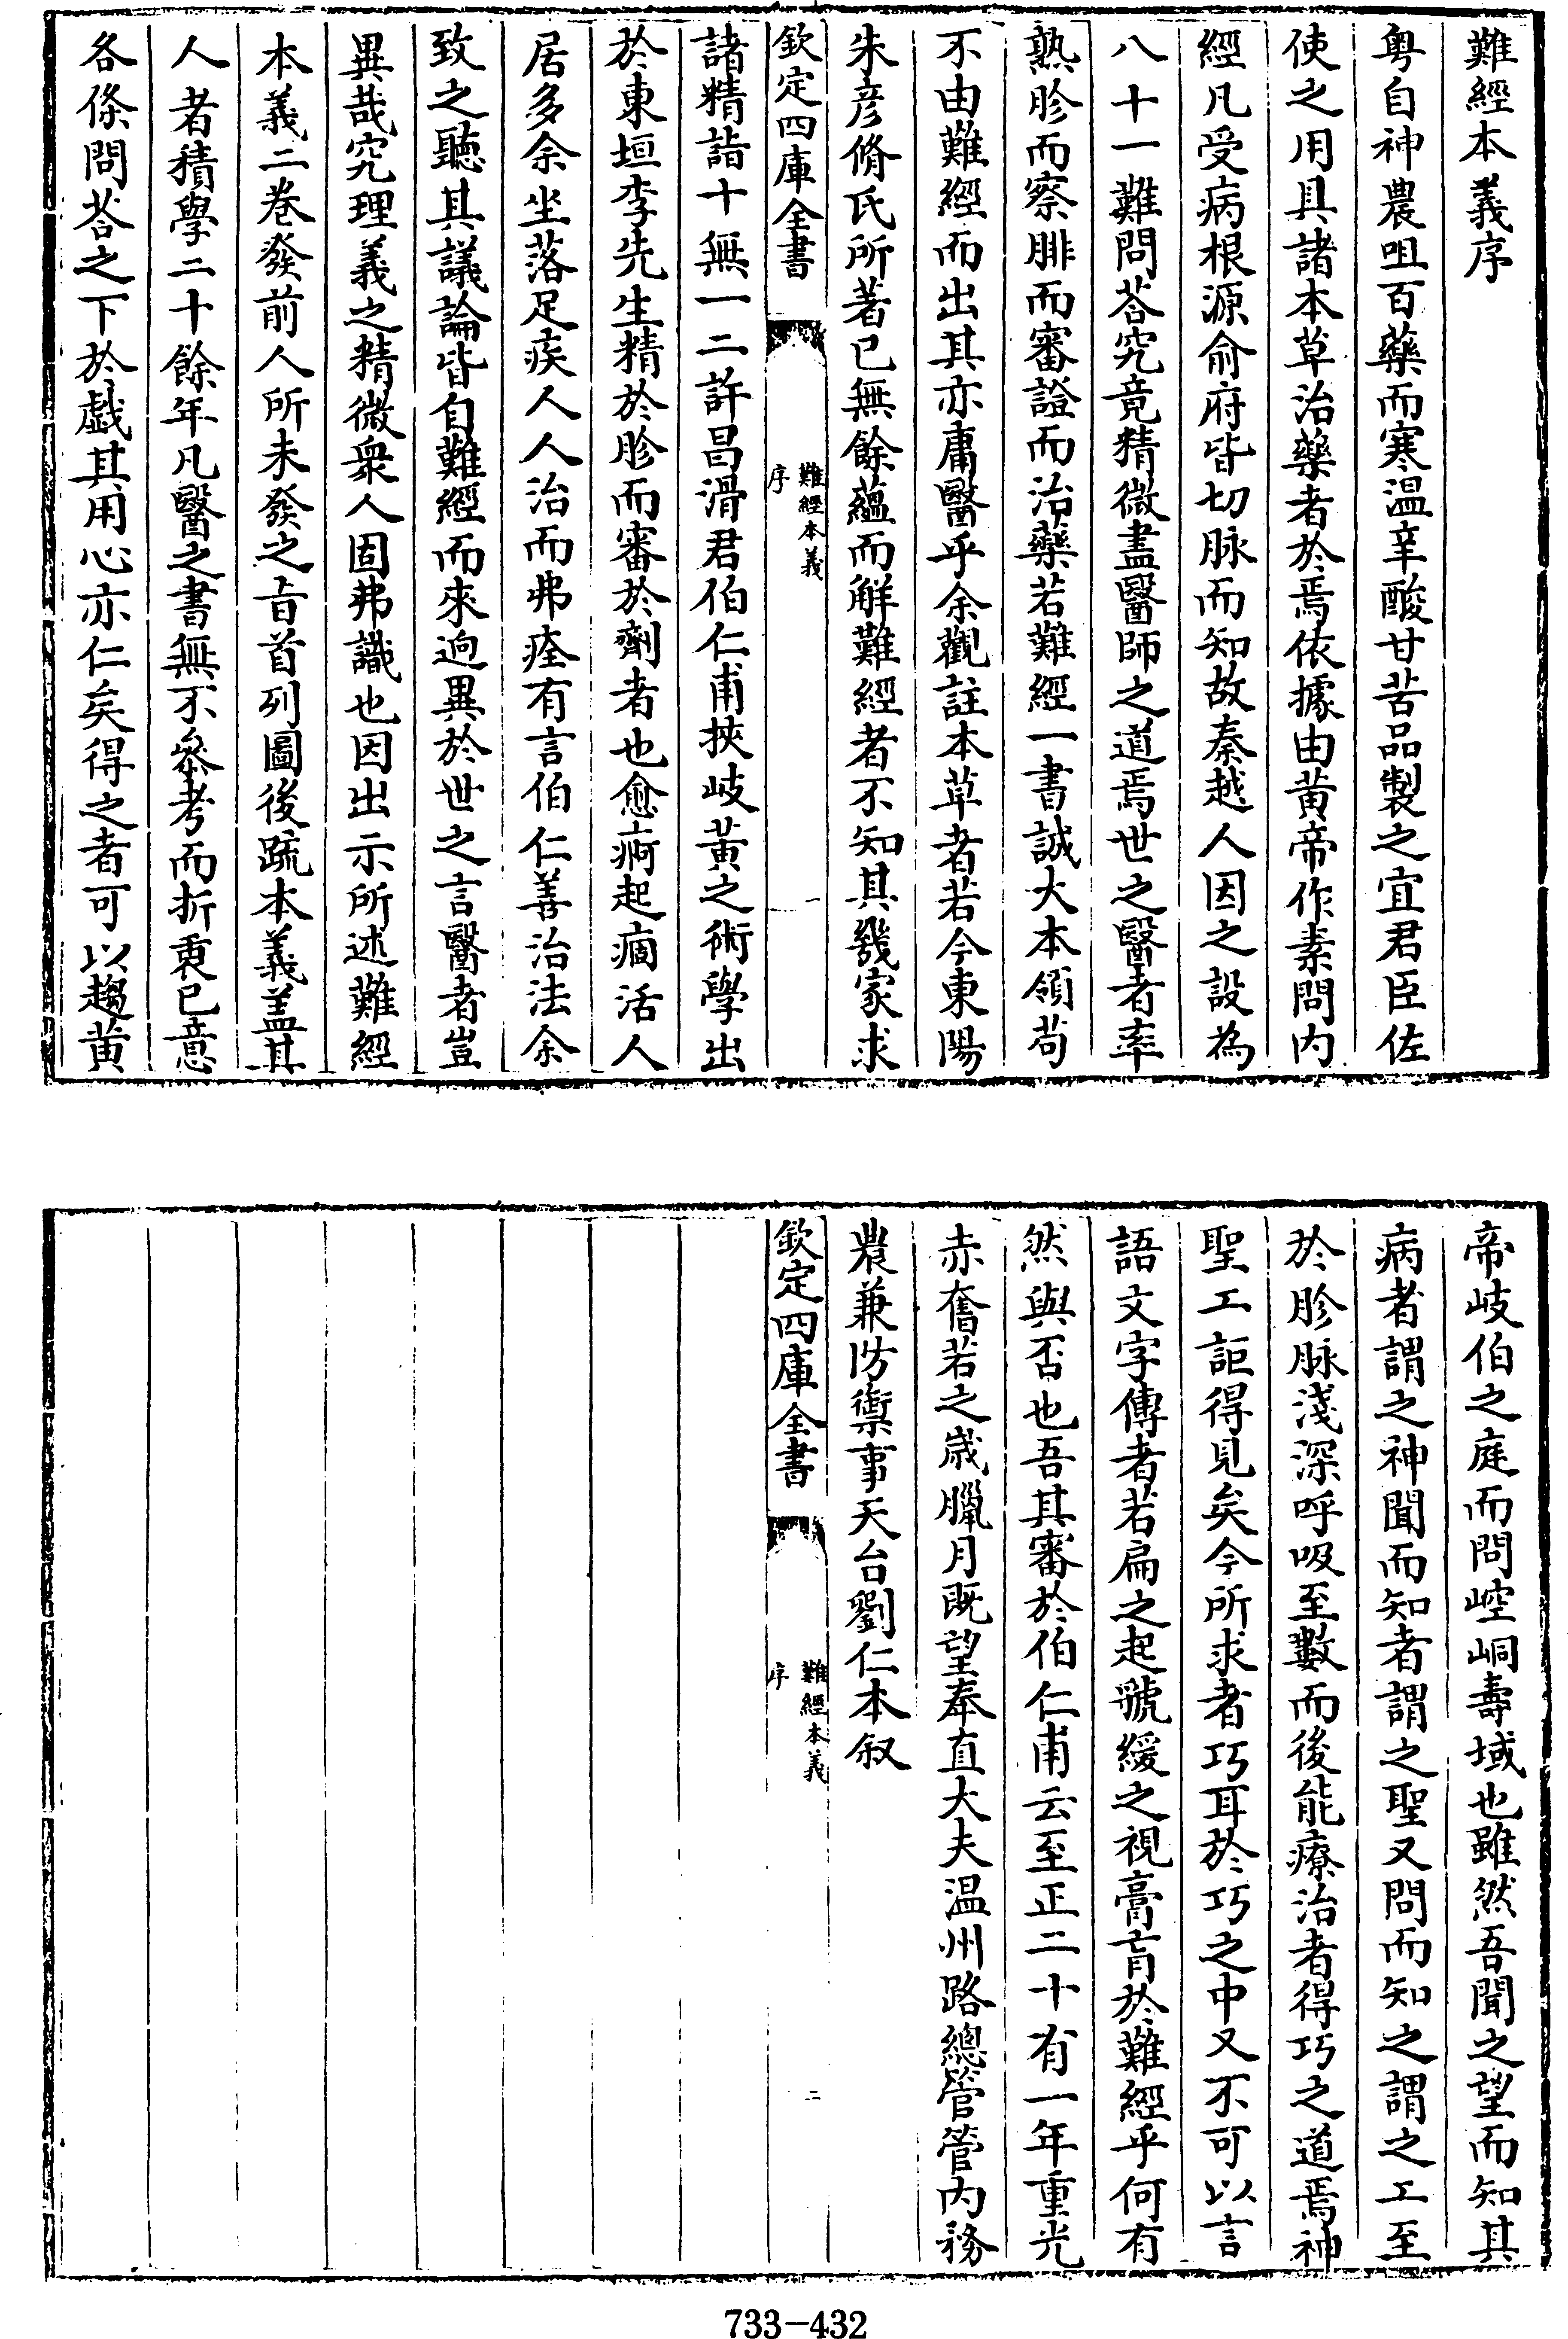 難經本義序
粤自神農咀百藥而寒温辛酸甘苦品製之宜君臣佐
使之用具諸本草治藥者於焉依據由黄帝作素問内
經凡受病根源俞府皆切脉而知故秦越人因之設為
八十一難問荅究竟精微盡醫師之道焉世之醫者率
熟胗而察腓而審證而治藥若難經一書誠大本領苟
不由難經而出其亦庸醫乎余觀註本草者若今東陽
朱彦脩氏所著已無餘蘊而解難經者不知其幾家求
欽定四庫全書
難經本義
序
一
諸精詣十無一二許昌滑君伯仁甫挾岐黄之術學出
於東垣李先生精於胗而審於劑者也愈痾起痼活人
居多余坐落足疾人人治而弗痊有言伯仁善治法余
致之聽其議論皆自難經而來迥異於世之言醫者豈
異哉究理義之精微衆人固弗識也因出示所述難經
本義二巻發前人所未發之旨首列圖後疏本義盖其
人者積學二十餘年凡醫之書無不參考而折衷已意
各條問荅之下於戯其用心亦仁矣得之者可以趨黄
帝岐伯之庭而問崆峒壽域也雖然吾聞之望而知其
病者謂之神聞而知者謂之聖又問而知之謂之工至
於胗脉淺深呼吸至數而後能療治者得巧之道焉神
聖工詎得見矣今所求者巧耳於巧之中又不可以言
語文字傳者若扁之起虢緩之視膏肓於難經乎何有
然與否也吾其審於伯仁甫云至正二十有一年重光
赤奮若之歲臘月既望奉直大夫温州路總管管内務
農兼防禦事天台劉仁本叙
欽定四庫全書
難經本義
序
二
733-432